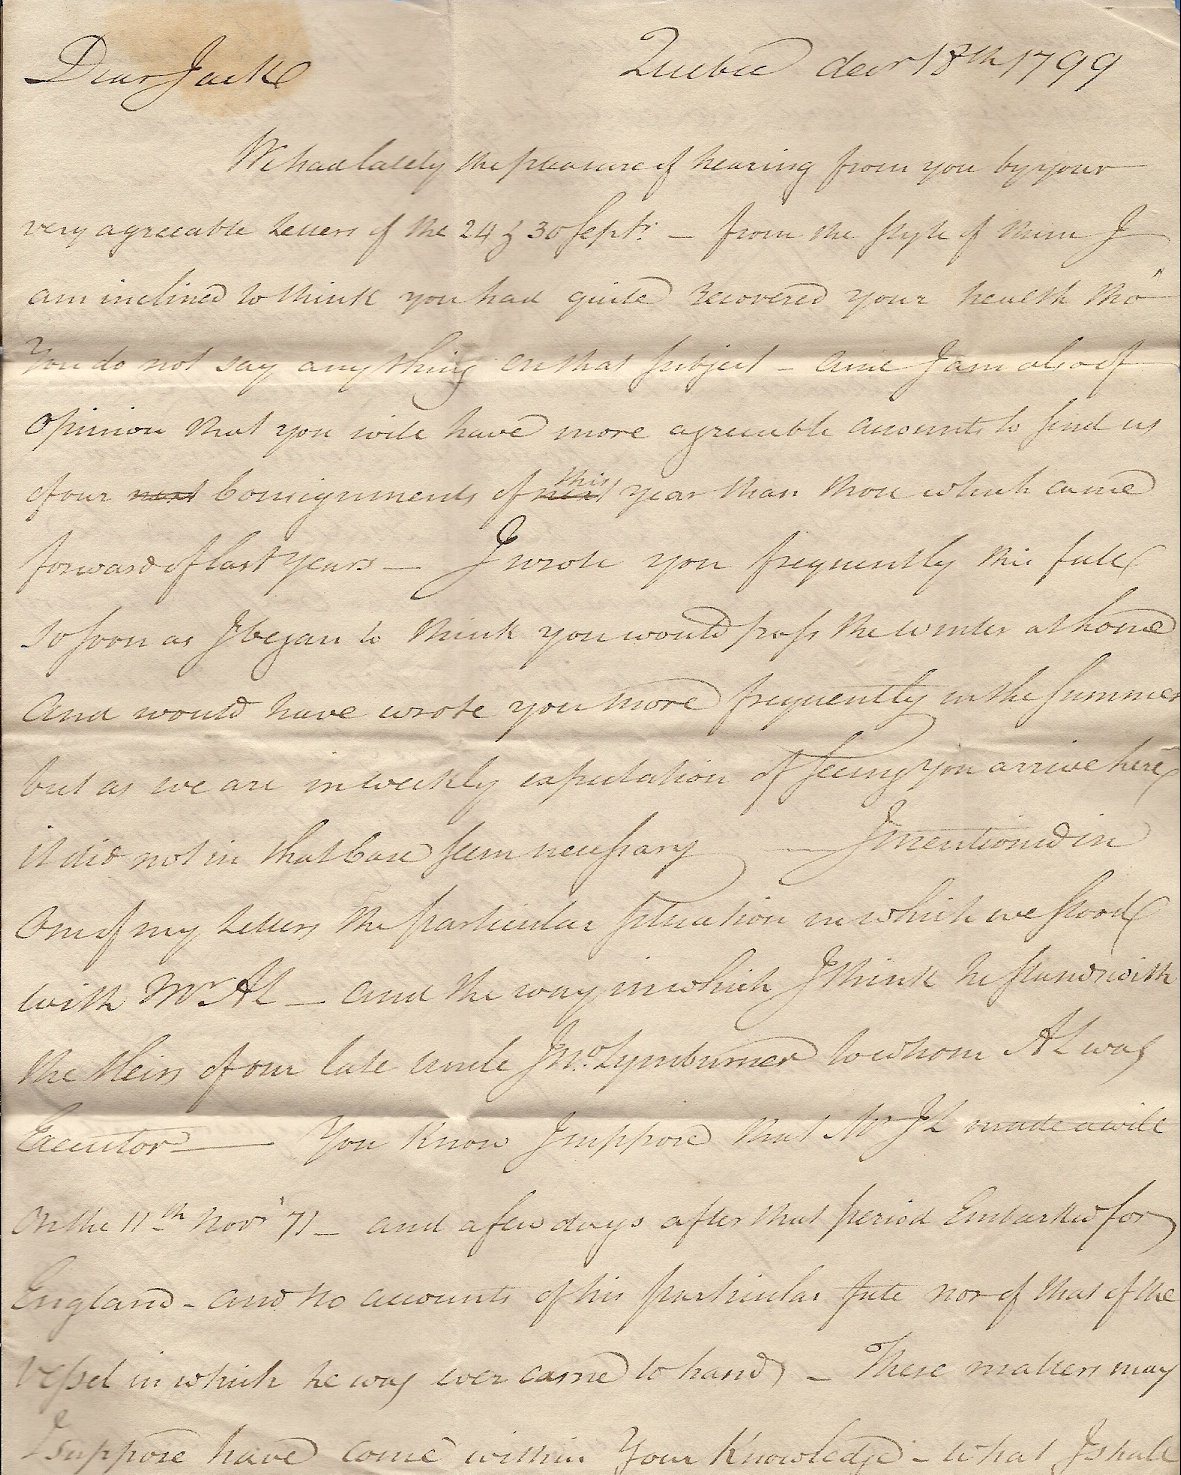 Dear Jack
Quebec decr 18th 1799
We had lately the pleasure of hearing from you by your
very agreeable Letters of the 24 & 30 Septr. – from the style of them I
am inclined to think you had quite recovered your health tho"
You do not say any thing on that subject – and I am also of
Opinion that you will have more agreeable accounts to send us
of our next Consignments of next this year than those which came
forward of last years – I wrote you frequently this fall
so soon as I began to think you would pass the winter at home
And would have wrote you more frequently in the Summer
but as we are in weekly expectation of seeing you arrive here
it did not in that Case seem necessary – I mentioned in
One of my Letters the particular situation in which we stood
with Mr AL – and the way in which I think he stands with
the Heirs of our late uncle Jno. Lymburner to whom AL was
Executor – You know I suppose that Mr JL made a will
On the 11th Novr 71 – and a few days after that period Embarked for
England – and no accounts of his particular fate nor of that of the
Vessel in which he was ever came to hand – These matters may
I suppose have come within Your Knowledge – what I shall